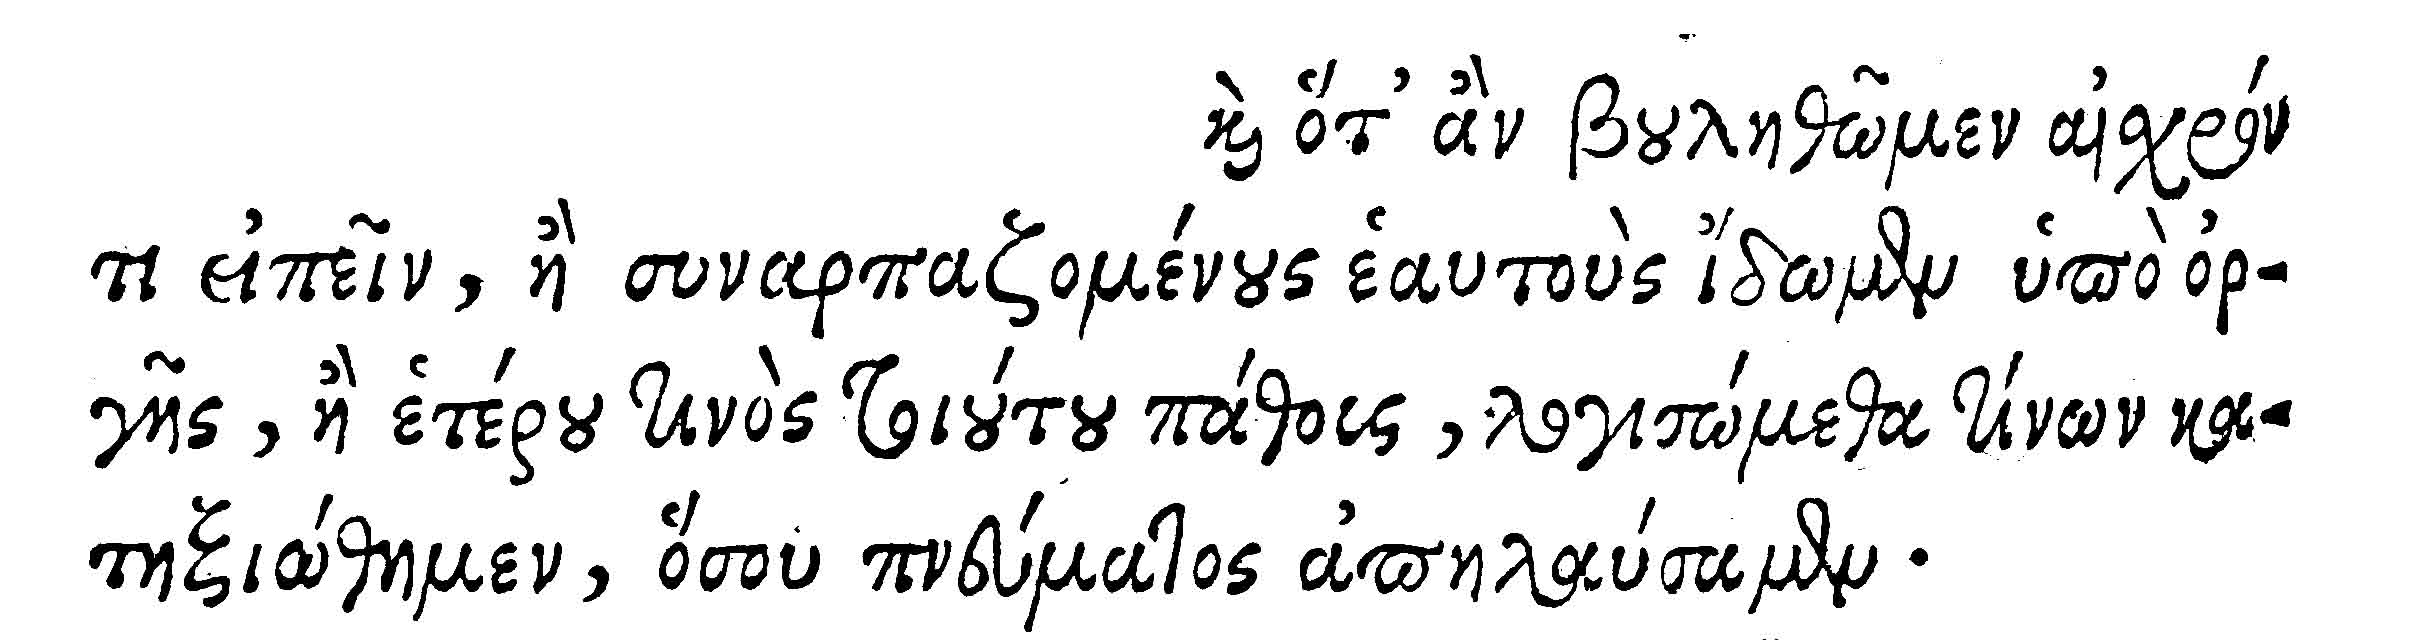 καὶ ὅτ' ἂν βουληθῶμεν αἰσχρόν
τι εἰπεῖν, ἢ συναρπαζομένους ἑαυτοὺς ἴδωμεν ὑπὸ ὀρ-
γῆς, ἢ ἑτέρου τινὸς τοιούτου πάθους, λογισώμεθα τίνων κα-
τηξιώθημεν, ὅσου πνεύματος ἀπηλαύσαμεν.